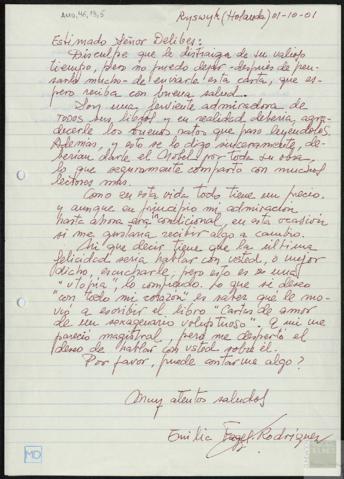 AMD, 46, 13, 5
Ryswyk (Holanda) 01-10-01
Estimado Señor Delibes:
Disculpe que le distraiga de su valioso
tiempo, pero no puedo dejar - después de pen-
sarlo mucho - de enviarle esta carta, que es-
pero reciba con buena salud.
Soy una ferviente admiradora de
todos sus libros y en realidad debería, agra-
decerle los buenos ratos que paso leyéndoles.
Además, y esto se lo digo sinceramente, de-
berían darle el Nobel por toda su obra,
lo que seguramente comparto con muchos
lectores más.
Como en esta vida todo tiene un precio,
y aunque en principio mi admiración
hasta ahora era incondicional, en esta ocasión
si me gustaría recibir algo a cambio.
Ni que decir tiene que la última
felicidad sería hablar con usted, o mejor
dicho, escucharle; pero esto es una
"utopia", lo comprendo. Lo que si deseo
"con todo mi corazón" es saber que le mo-
vió a escribir el libro "Cartas de amor
de un sexagenario voluptuoso". A mi me
pareció magistral, pero me despertó el
deseo de hablar con usted sobre él.
Por favor, puede contarme algo?
Muy atentos saludos
Emilia Rodríguez
MD